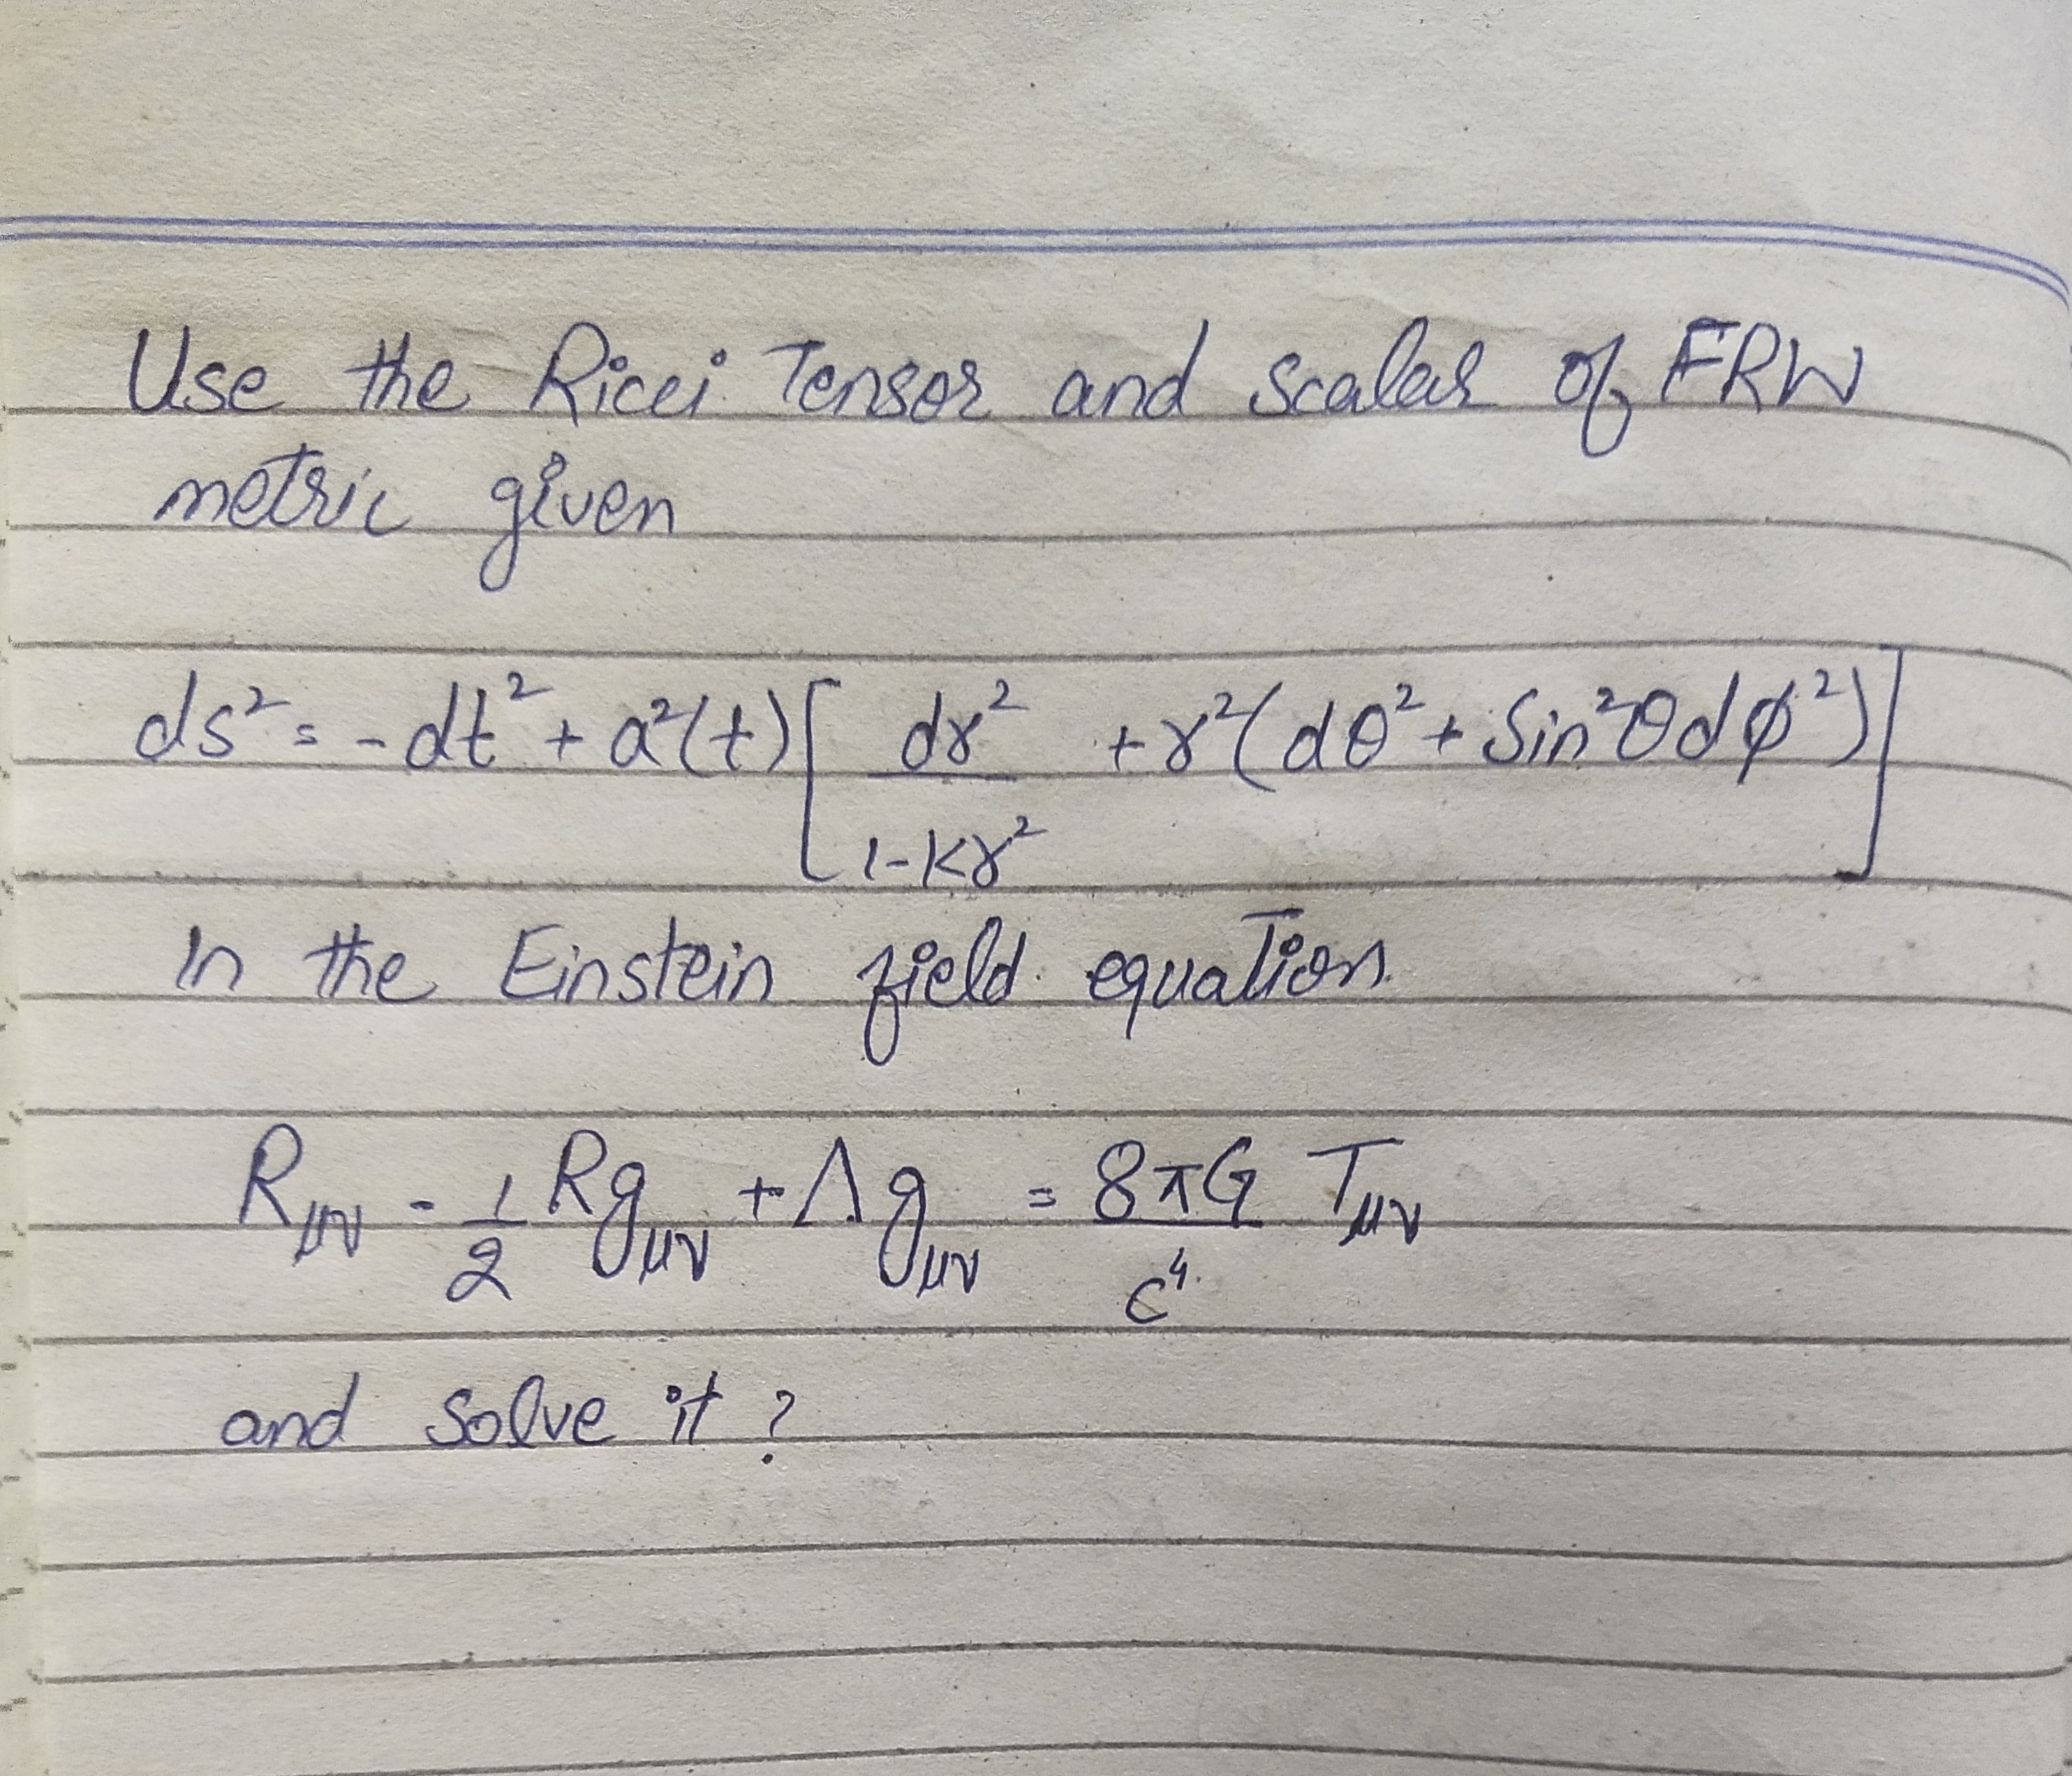 Use the Ricci Tensor and scalar of FRW
metric given
ds² = -dt² + a²(t) [ dr² / 1-kr² + r²(dθ² + Sin²θdϕ²) ]
In the Einstein field equation
Rμν - 1/2 Rgμν + Λgμν = 8πG / c⁴ Tμν
and solve it ?